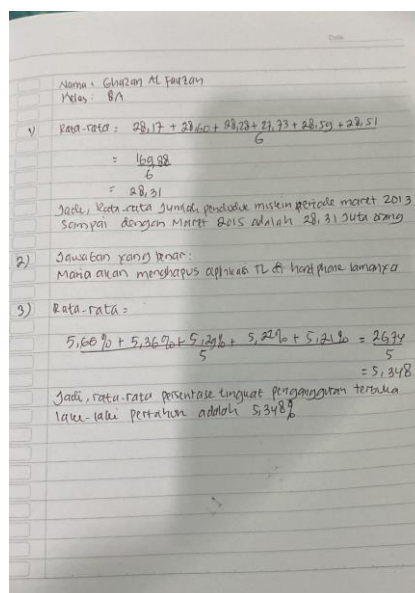 Date
Nama : Ghazan Al Fauzan
Kelas : 8A
1) Rata-rata = 28,17 + 28,60 + 28,28 + 27,73 + 28,59 + 28,51
6
= 169,88
6
= 28,31
Jadi, Rata-rata Jumlah penduduk miskin periode maret 2013
Sampai dengan Maret 2015 adalah 28,31 Juta orang
2) Jawaban yang benar:
Maria akan menghapus aplikasi TL di handphone lamanya
3) Rata-rata =
5,66% + 5,36% + 5,29% + 5,22% + 5,21% = 26,74
5 5
= 5,348
Jadi, rata-rata persentase tingkat pengangguran terbuka
laki-laki pertahun adalah 5,348%